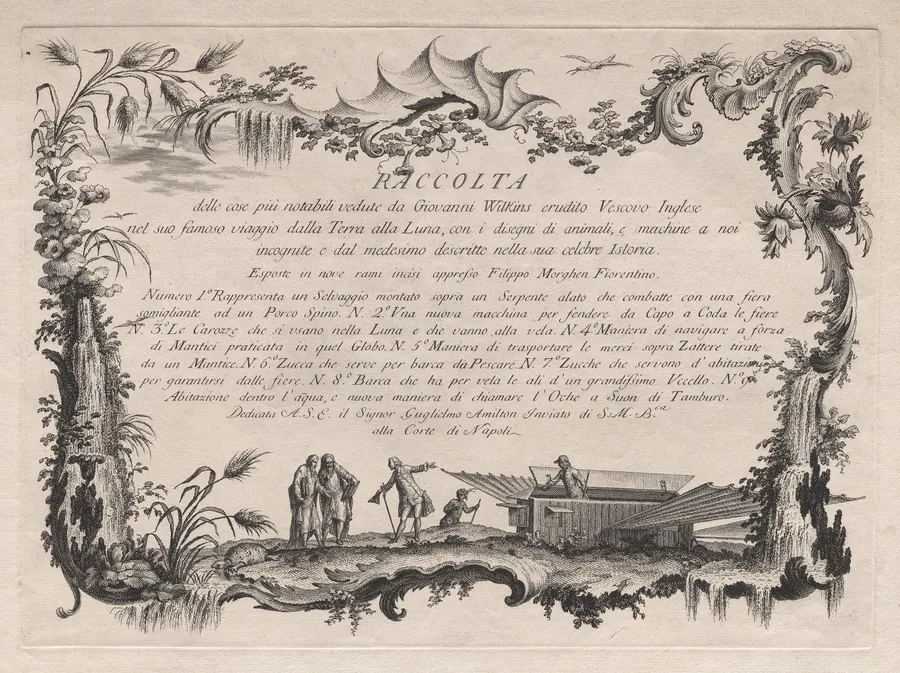 RACCOLTA
delle cose più notabili vedute da Giovanni Wilkins erudito Vescovo Inglese
nel suo famoso viaggio dalla Terra alla Luna, con i disegni di animali, e machine a noi
incognite e dal medesimo descritte nella sua celebre Istoria.
Esposte in nove rami incisi appresso Filippo Morghen Fiorentino.
Numero 1º Rappresenta un Selvaggio montato sopra un Serpente alato che combatte con una fiera
somigliante ad un Porco Spino. N. 2º Vna nuova macchina per fendere da Capo a Coda le fiere
N. 3º Le Carozze che si vsano nella Luna e che vanno alla vela. N. 4º Maniera di navigare a forza
di Mantici praticata in quel Globo. N. 5º Maniera di trasportare le merci sopra Zattere tirate
da un Mantice. N. 6º Zucca che serve per barca da Pescare. N. 7º Zucche che servono d'abitazione
per garantirsi dalle fiere. N. 8º Barca che ha per vela le ali d'un grandissimo Vccello. N. 9º
Abitazione dentro l'aqua, e nuova maniera di chiamare l'Oche a Suon di Tamburo.
Dedicata A. S. E. il Signor Guglielmo Amilton Inviato di S. M. B.ca
alla Corte di Napoli